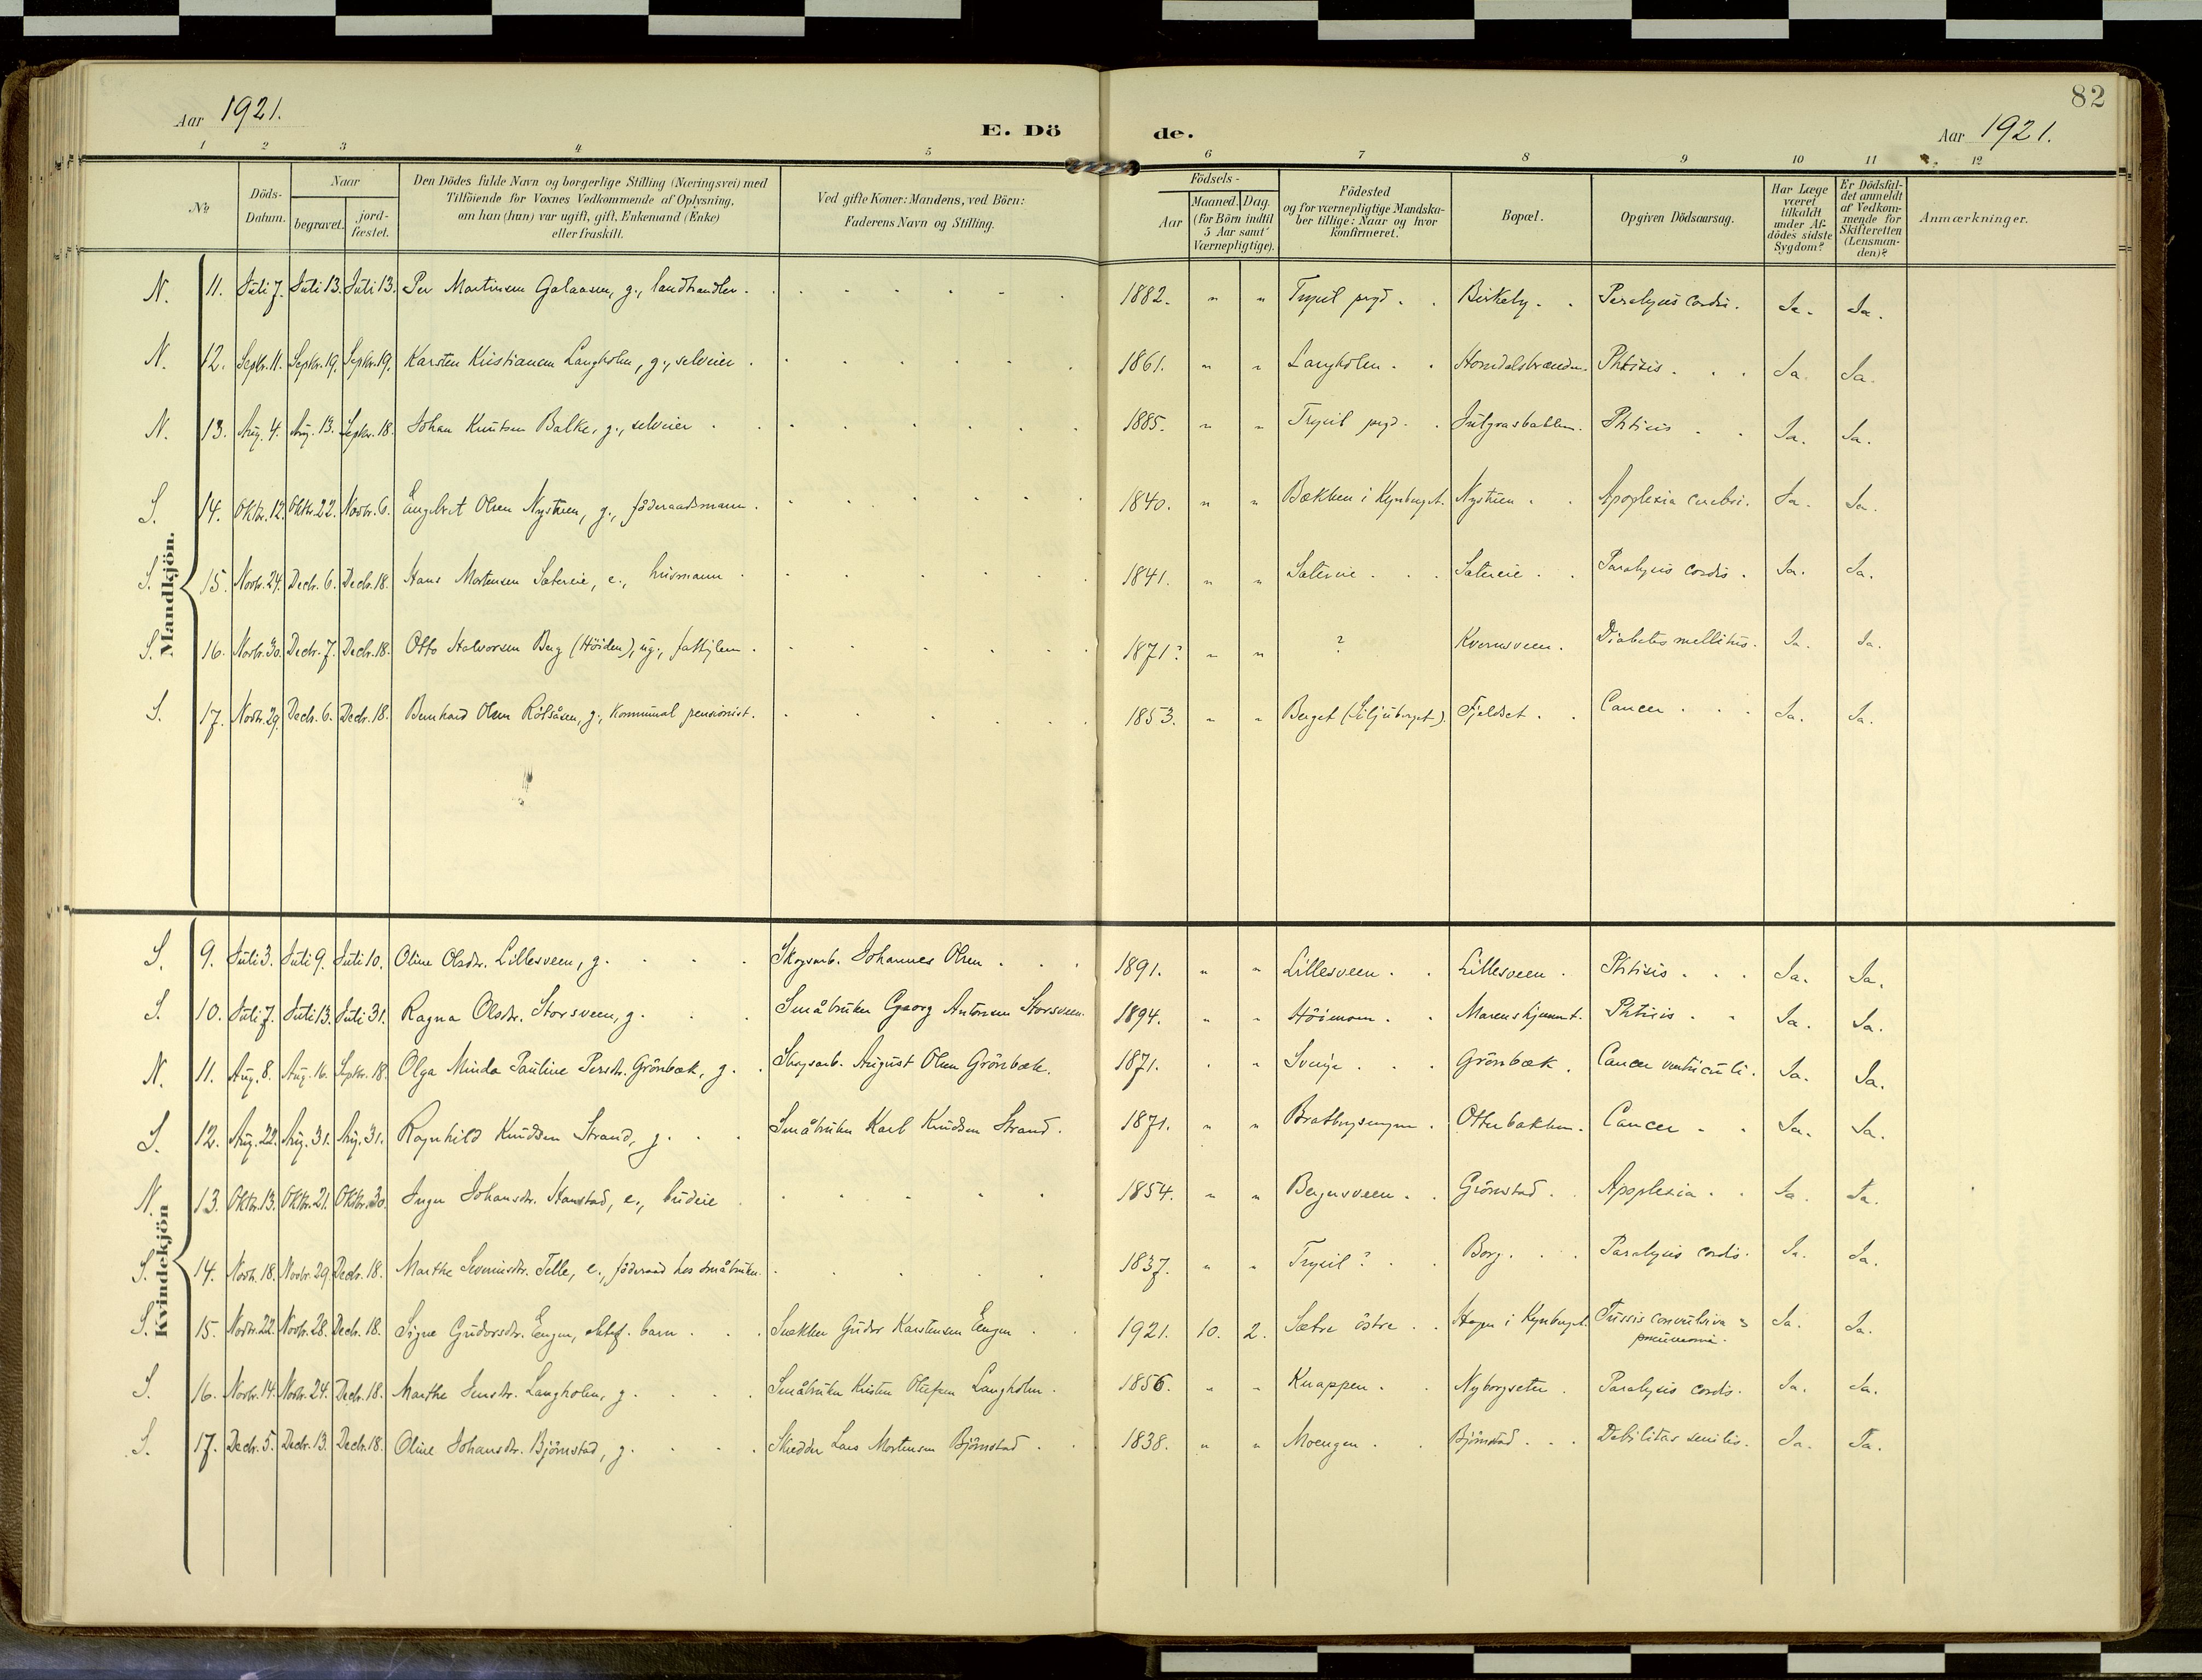 82
Aar 1921.
E. Dö de.
Aar 1921.
1 2 3 4 5 6 7 8 9 10 11 12
No
Döds-Datum.
Naar
begravet.
jord-fæstet.
Den Dödes fulde Navn og borgerlige Stilling (Næringsvei) med
Tilföiende for Voxnes Vedkommende af Oplysning,
om han (hun) var ugift, gift, Enkemand (Enke)
eller fraskilt.
Ved gifte Koner: Mandens, ved Börn:
Faderens Navn og Stilling.
Födsels-
Aar
Maaned. Dag.
(for Börn indtil
5 Aar samt
Værnepligtige).
Födested
og for værnepligtige Mandska-
ber tillige: Naar og hvor
konfirmeret.
Bopæl.
Opgiven Dödsaarsag.
Har Læge
været
tilkaldt
under Af-
dödes sidste
Sygdom?
Er Dödsfal-
det anmeldt
af Vedkom-
mende for
Skifteretten
(Lensman-
den)?
Anmærkninger.
Mandkjön.
N. 11. Juli 7. Juli 13. Juli 13. Per Martinsen Galaasen, g., landhandler. 1882. " " Trysil prgd. Birkely. Paralysis cordis. Ja. Ja.
N. 12. Septr. 11. Septr. 19. Septr. 19. Karsten Kristiansen Langholm, g., selveier. 1861. " " Langholen. Homdalsbrænden. Phtisis. Ja. Ja.
N. 13. Aug. 4. Aug. 13. Septr. 18. Johan Knutsen Balke, g., selveier. 1885. " " Trysil prgd. Julgrasbakken. Phtisis. Ja. Ja.
S. 14. Oktbr. 12. Oktbr. 22. Novbr. 6. Engebret Olsen Nystuen, g., föderaadsmann. 1840. " " Bækken i Kynberget. Nystuen. Apoplexia cerebri. Ja. Ja.
S. 15. Novbr. 24. Decbr. 6. Decbr. 18. Hans Mortensen Sætereie, e., husmann. 1841. " " Sætereie. Sætereie. Paralysis cordis. Ja. Ja.
S. 16. Novbr. 30. Decbr. 7. Decbr. 18. Otto Halvorsen Berg (Höiden), ug., fattiglem. 1871? " " ? Kvernsveen. Diabetes mellitus. Ja. Ja.
S. 17. Novbr. 29. Decbr. 6. Decbr. 18. Bernhard Olsen Rölsåsen, g., kommunal pensionist. 1853. " " Berget (Siljuberget). Fjeldset. Cancer. Ja. Ja.
Kvindekjön
S. 9. Juli 3. Juli 9. Juli 10. Oline Olsdtr. Lillesveen, g. Skogsarb. Johannes Olsen. 1891. " " Lillesveen. Lillesveen. Phtisis. Ja. Ja.
S. 10. Juli 7. Juli 13. Juli 31. Ragna Olsdtr. Storsveen, g. Småbruker Georg Antonsen Storsveen. 1894. " " Höimoen. Phtisis. Ja. Ja.
N. 11. Aug. 8. Aug. 16. Septr. 18. Olga Minda Pauline Persdtr. Grönbæk, g. Skogsarb. August Olsen Grönbæk. 1871. " " Sverige. Grönbæk. Cancer ventriculi. Ja. Ja.
S. 12. Aug. 22. Aug. 31. Aug. 31. Ragnhild Knudsen Strand, g. Småbruker Karl Knudsen Strand. 1871. " " Otterbakken. Cancer. Ja. Ja.
N. 13. Oktbr. 13. Oktbr. 21. Oktbr. 30. Inger Johansdtr. Hanstad, e., budeie 1854. " " Bergersveen. Grönstad. Apoplexia. Ja. Ja.
S. 14. Novbr. 18. Novbr. 29. Decbr. 18. Marthe Severinsdtr. Telle, e., föderaad hos småbruker. 1837. " " Trysil? Borg. Paralysis cordis. Ja. Ja.
S. 15. Novbr. 22. Novbr. 28. Decbr. 18. Signe Gudorsdtr. Engen, ektef. barn. Snekker Gudor Karstensen Engen 1921. 10. 2. Sætre östre. Hagen i Kynberget. Tussis convulsiva &
pneumoni.
Ja. Ja.
S. 16. Novbr. 14. Novbr. 24. Decbr. 18. Marthe Jensdtr. Langholen, g. Småbruker Kristen Olafsen Langholen. 1856. " " Knappen. Nyborgseter. Paralysis cordis. Ja. Ja.
S. 17. Decbr. 5. Decbr. 13. Decbr. 18. Oline Johansdtr. Björnstad, g. Skredder Lars Mortensen Björnstad. 1838. " " Moengen. Björnstad. Debilitas senilis. Ja. Ja.